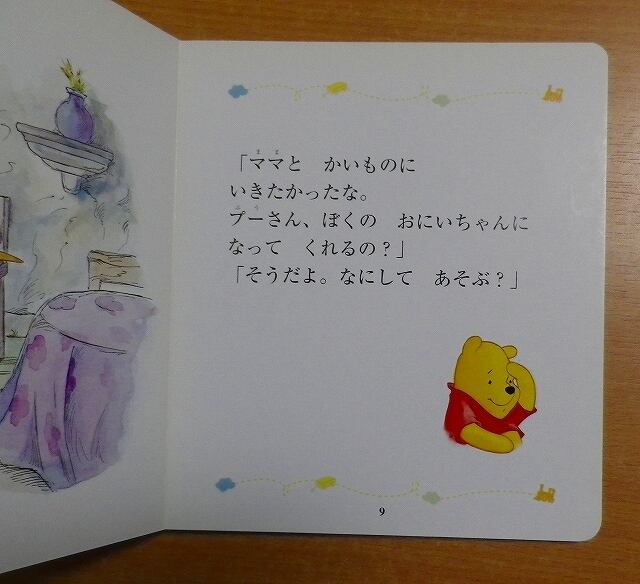 「ママと　かいものに
いきたかったな。
プーさん、ぼくの　おにいちゃんに
なって　くれるの？」
「そうだよ。なにして　あそぶ？」
9